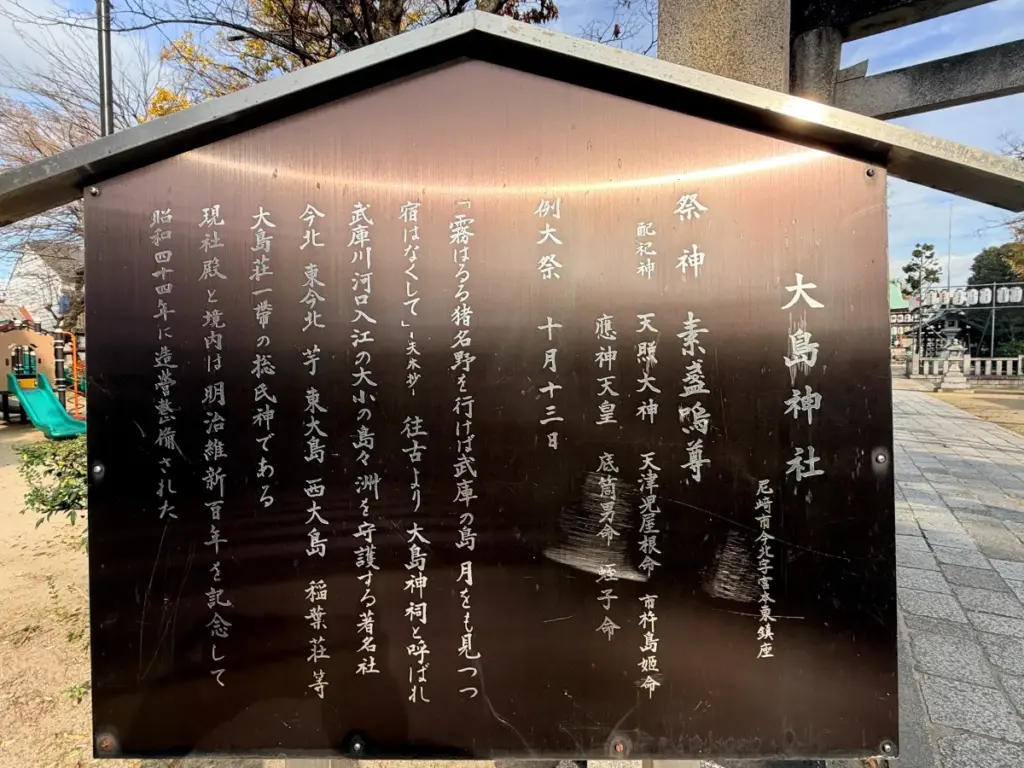 大島神社
尼崎市今北字宮本東鎮座
祭神 素盞嗚尊
配祀神 天照大神 天津児屋根命 市杵島姫命
應神天皇 底筒男命 蛭子命
例大祭 十月十三日
「霧はるる猪名野を行けば武庫の島 月をも見つつ
宿はなくして」夫木抄 往古より 大島神祠と呼ばれ
武庫川河口入江の大小の島々 洲を守護する著名社
今北 東今北 芋 東大島 西大島 稲葉荘 等
大島荘一帯の総氏神である
現社殿と境内は明治維新百年を記念して
昭和四十四年に造営整備された